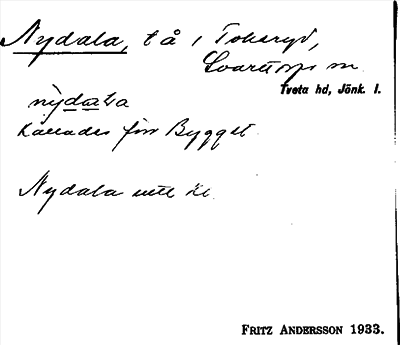 Nydala, t å i Tokeryd,
Svarttorps sn
Tveta hd, Jönk. l.
nỳdala
kallades förr Bygget
Nydala
FRITZ ANDERSSON 1933.